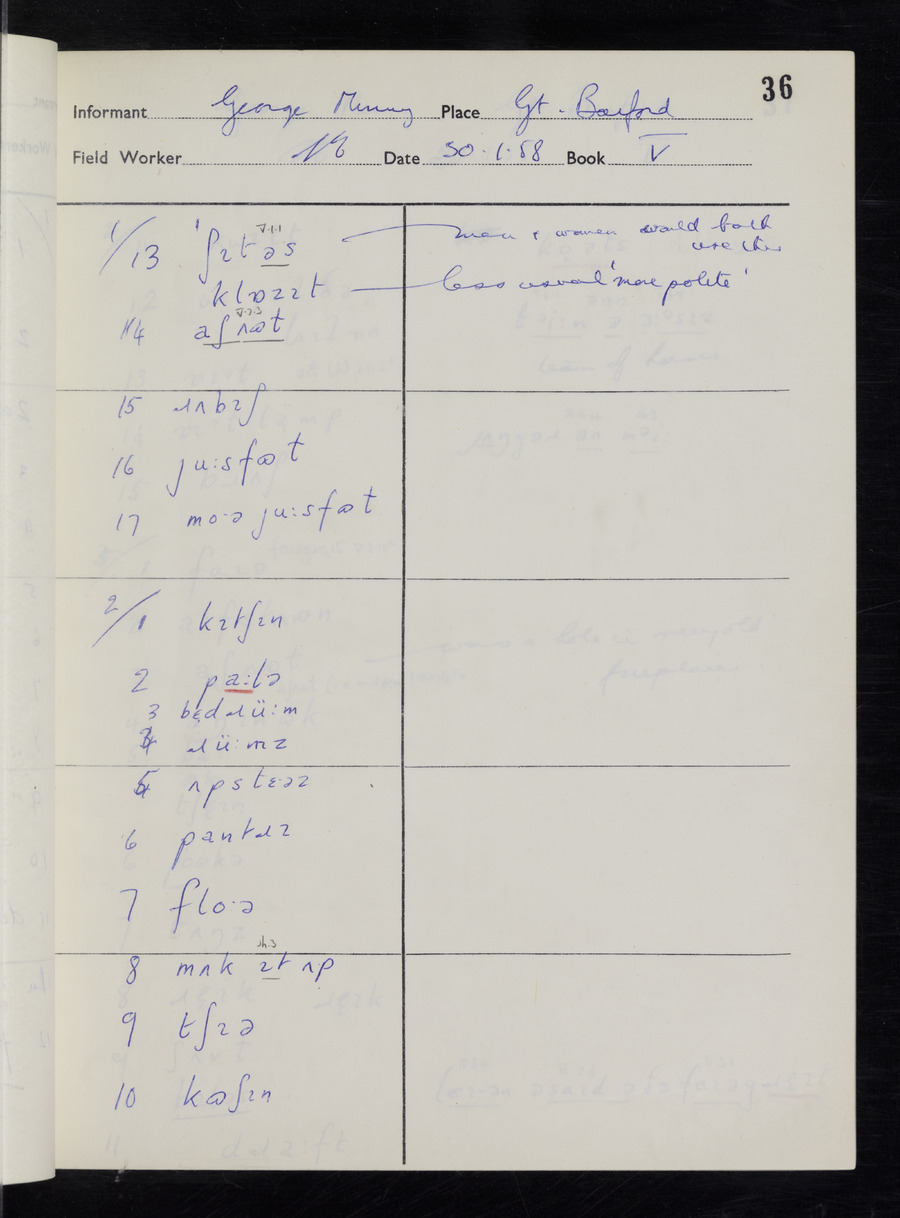 36
Informant George Place Gt. Barford
Field Worker Date 30.1.58 Book V
1/13 ˈʃɪt əs V.1.1 men & women would both
use this
klɒzɪt less usual 'more polite'
14 aʃ ʌɷt V.7.3
15 ɹʌbɪʃ
16 ju:sfɷt
17 mo·ə ju:sfɷt
2/1 kɪtʃɪn
2 pa:lə
3 bɛdɹü:m
4 ɹü:mz
5 ʌpstɛəz
6 pantɹɪ
7 flo·ə
8 mʌk ɪt ʌp
9 tʃɪə
10 kɷʃɪn